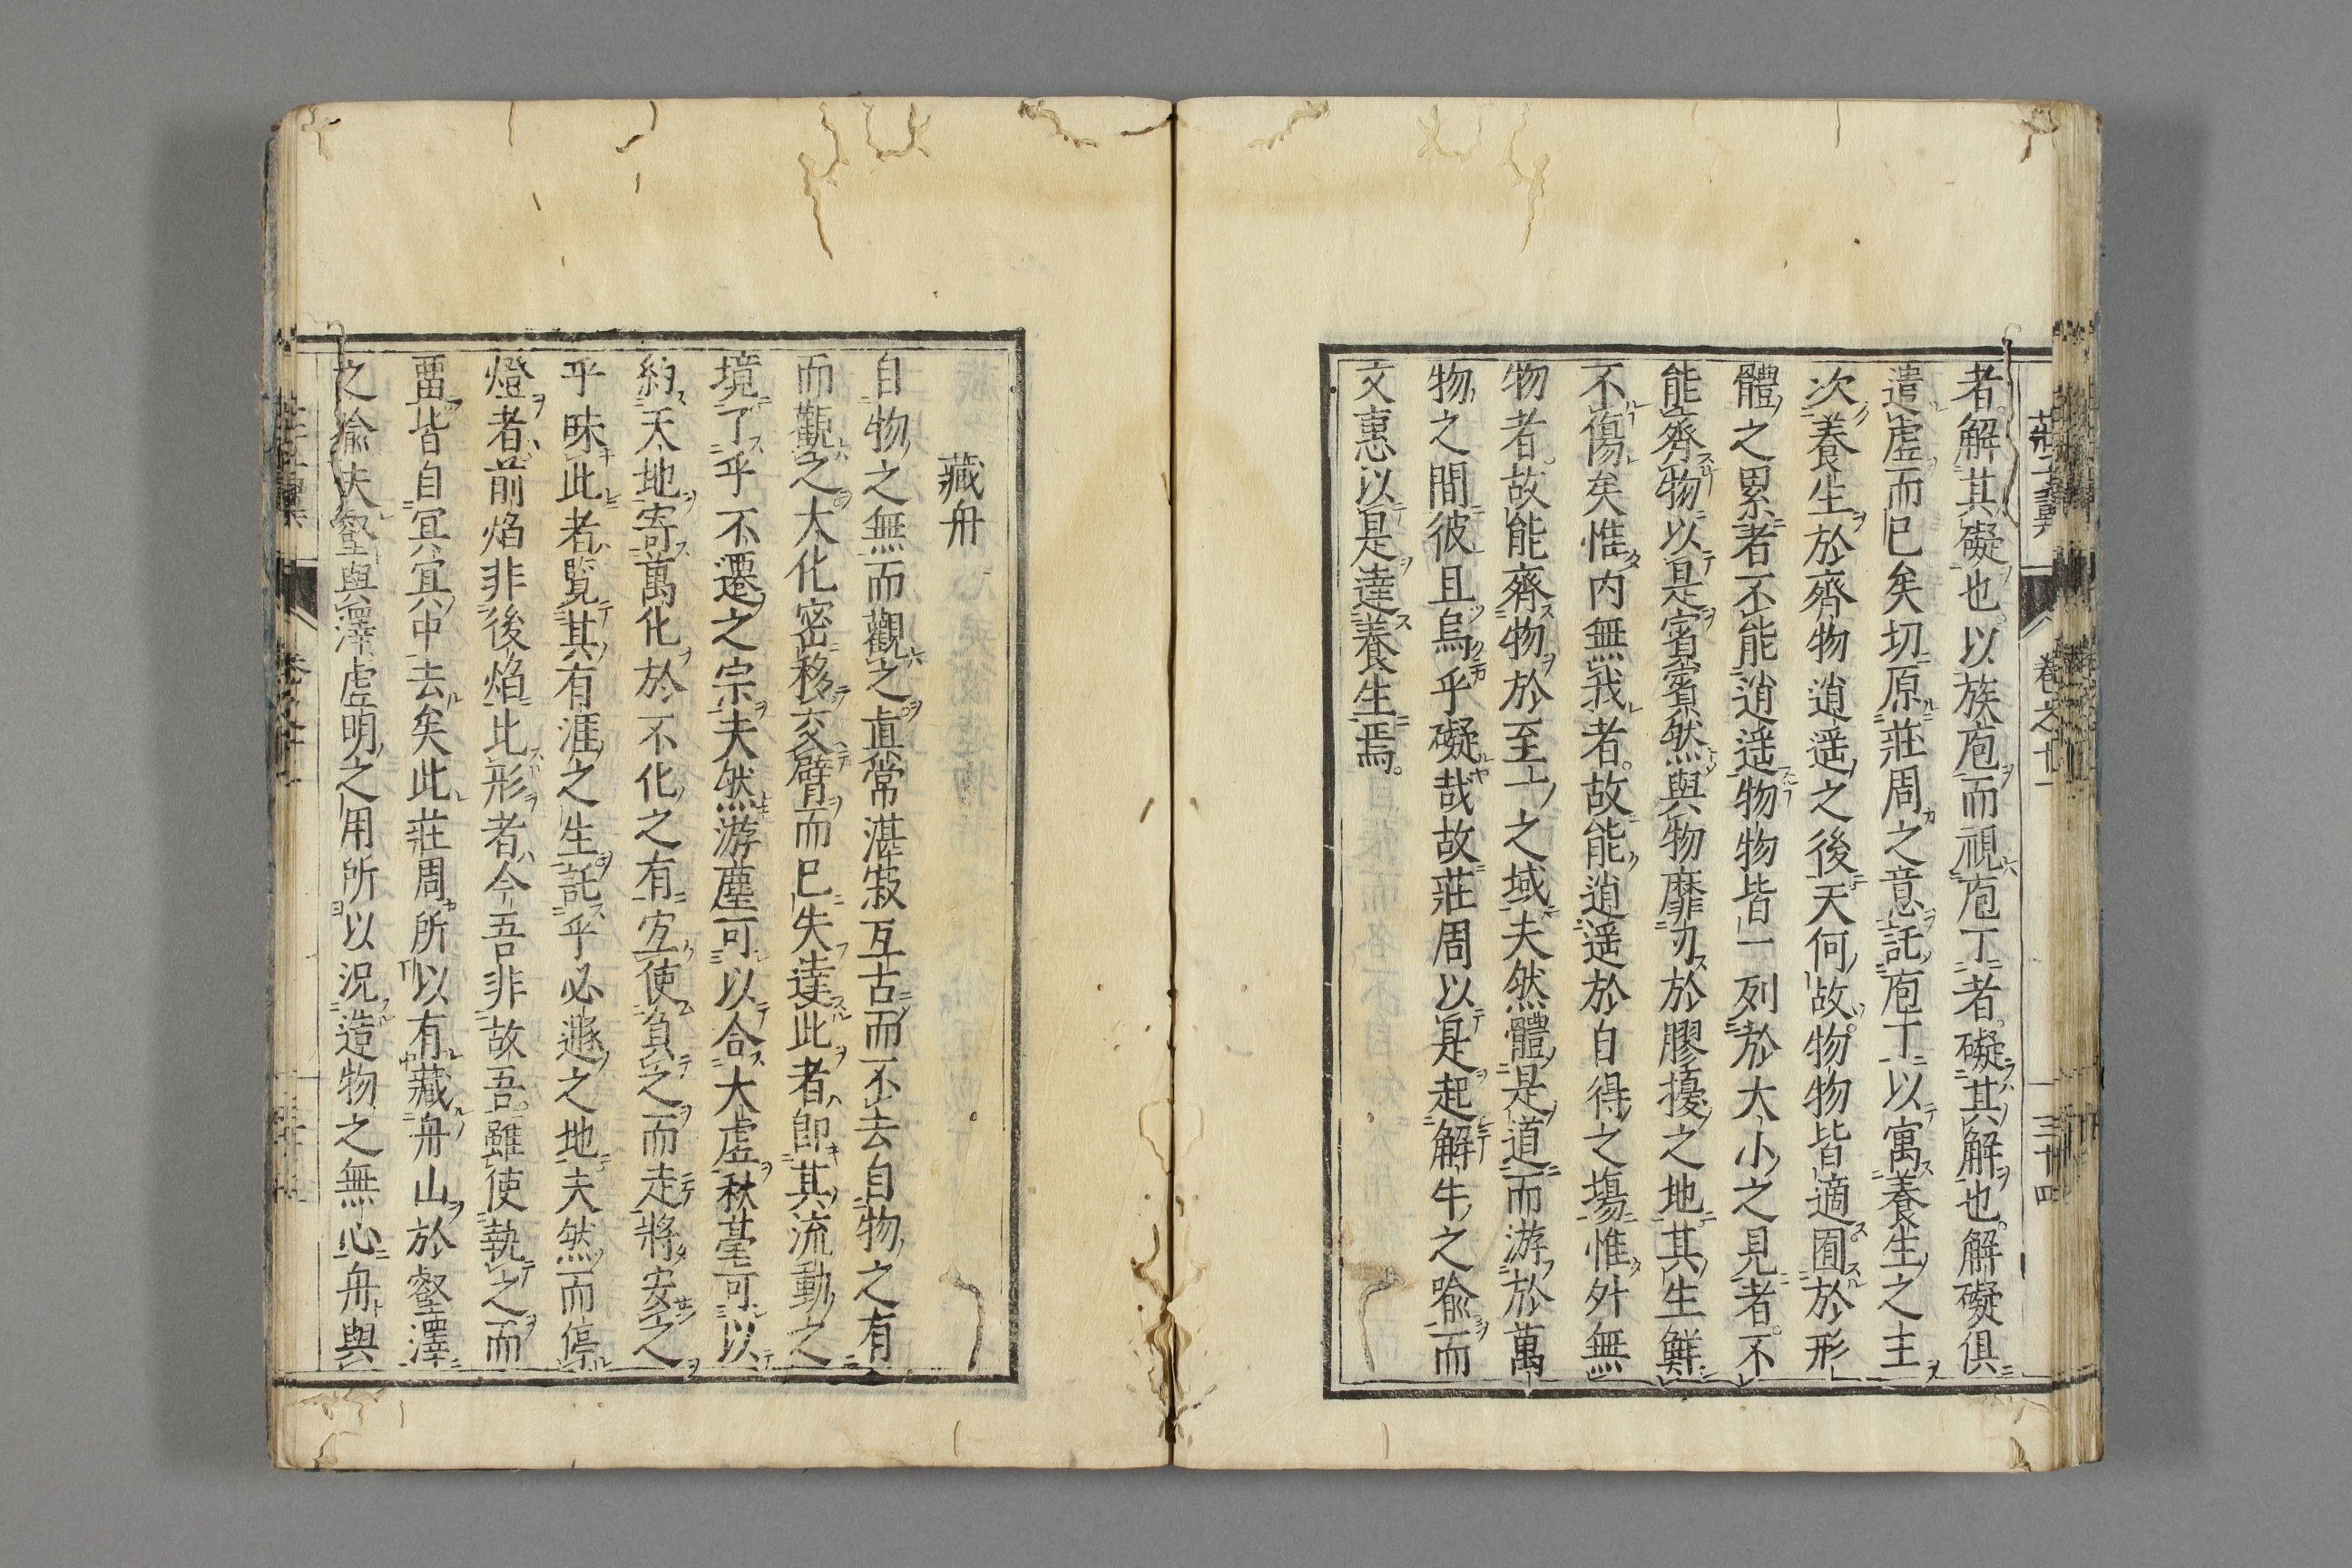 者解其礙也以族庖而視庖丁者礙其解也解礙俱
遣虛而已矣切原莊周之意託庖丁以寓養生之主
次養生於齊物逍遥之後夫何故物物皆適囿於形
體之累者不能逍遥物物皆一列於大小之見者不
能齊物以是賓賓然與物靡刃於膠擾之地其生鮮
不傷矣惟内無我者故能逍遥於自得之塲惟外無
物者故能齊物於至一之域夫然體是道而游於萬
物之間彼且烏乎礙哉故莊周以是起解牛之喻而
文惠以是達養生焉
藏舟
自物之無而觀之真常湛寂亙古而不去自物之有
而觀之大化密移交臂而已失達此者即其流動之
境了乎不遷之宗夫然游塵可以合大虛秋毫可以
約天地寄萬化於不化之有宐使負之而走將安之
乎昧此者覽其有涯之生託乎必遯之地夫然而停
燈者前焰非後焰此形者今吾非故吾雖使執之而
畱皆自冥冥中去矣此莊周所以有藏舟山於壑澤
之喻夫壑與澤虛明之用所以況造物之無心舟與